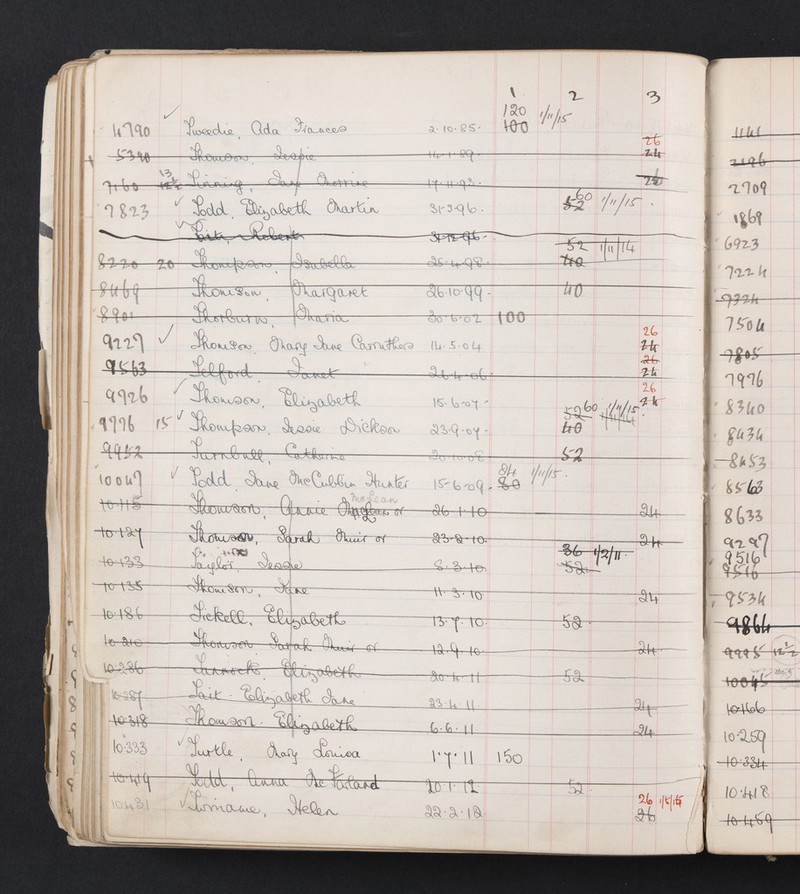 1 2 3
4790 Tweedie, Ada Frances 2.10.85. 120 100 1/11/15
5390 Thomson, Jessie 14.1.89. 26 24
7160 13 Tinning, 17.11.93.
7823 Todd, Elizabeth Martin 31.3.96. 60 52 1/11/15.
Tait, Robert 31.12.96. 52 1/11/14
8220 20 Thompson, Isabella 25.4.98. 40
8469 Thomson, Margaret 26.10.99. 40
8901 Thorburn, Maria 30.6.02 100
9227 Thomson, Mary Jane Carruthers 14.5.04 26 24
9563 Telford, Janet 26.4.06. 26 24
9726 Thomson, Elizabeth 15.6.07. 26 24
9776 15 Thompson, Jessie Dickson 23.9.07. 52 60 1/11/15. 40 1/11/14
9952 Turnbull, Catherine 20.10.08 52
10047 Todd, Jane McCubbin Hunter 15.6.09. 84 80 1/11/15.
10.115 Thomson, Annie McLean or 26.1.10 24
10.127 Thomson, Sarah Muir or 23.2.10. 24
10.133 Taylor, Jessie 8.3.10. 36 1/2/11. 52
10.135 Thomson, Jane 11.3.10 24
10.186 Tickell, Elizabeth 13.7.10. 52.
10.210 Thomson Sarah Muir or 12.9.10. 24
10.286 Tannock, Elizabeth 20.4.11 52
10.287 Tait. Elizabeth Jane 23.4.11 24
10.318 Thomson. Elizabeth 6.6.11 24
10.333 Turtle, Mary Louisa 1.7.11 150
10.419 Todd, Anna McFarland 10.1.12 52.
10.431 Tirname, Helen 22.2.12 26 1/5/15 26
1141
2196
2709
1869
6923
7224
7324
7504
7805
7976
8340
8434
8453
8563
8633
9297
9516
9516
9534
9864
9995 12½
10045
10.166
10.259
10.334
10.418
10.459